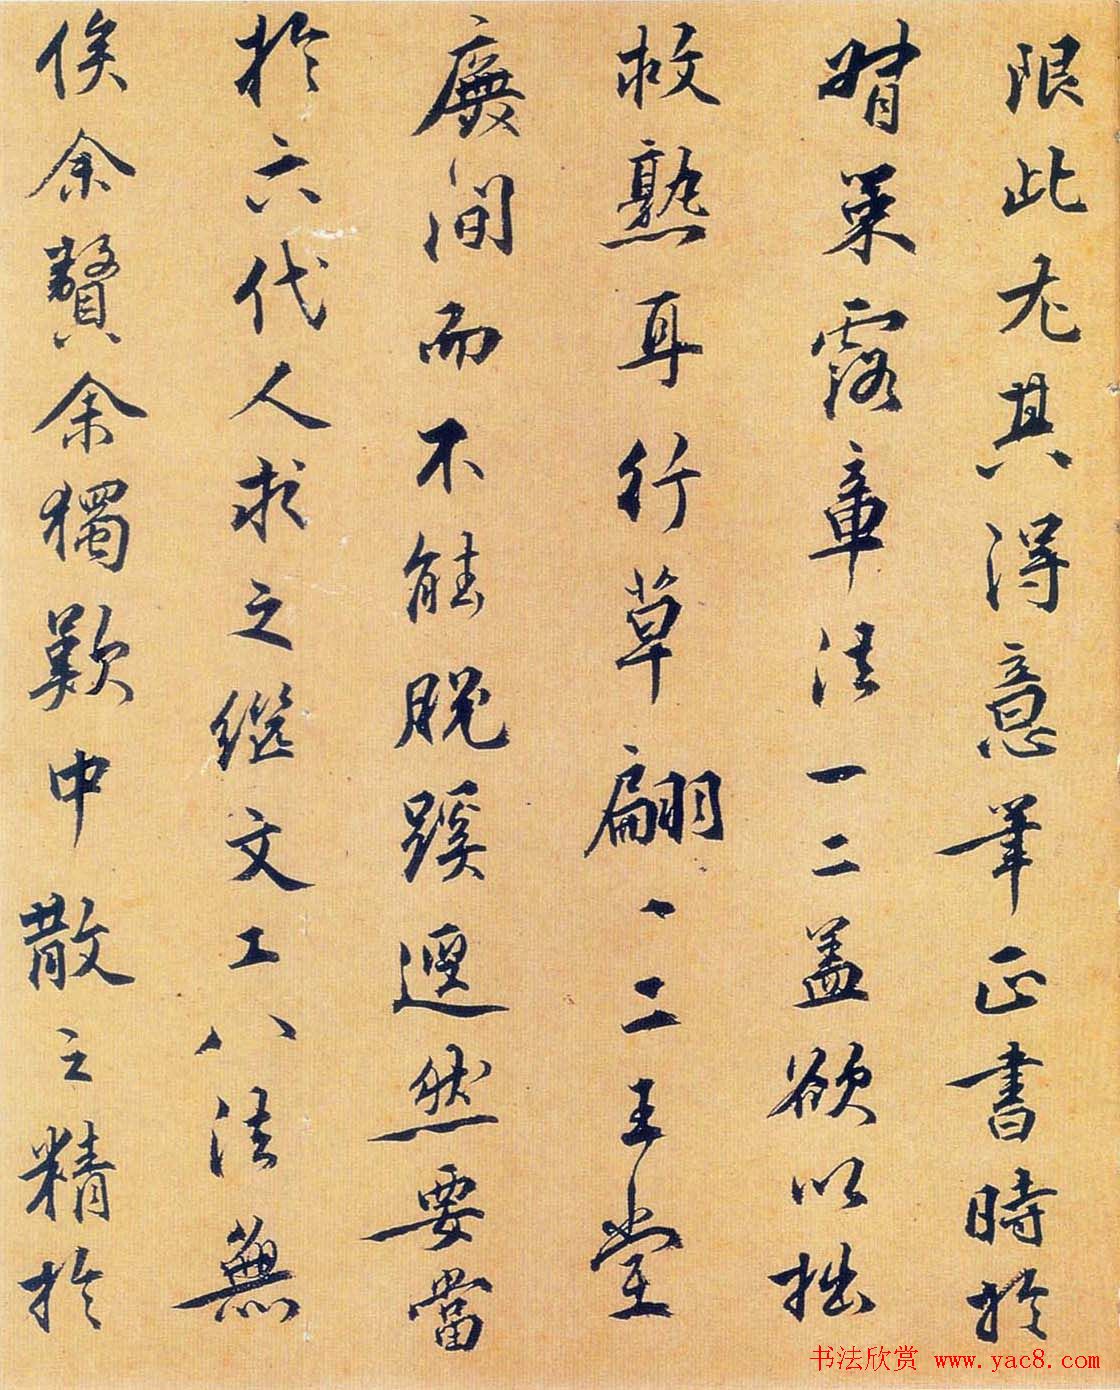 限此尤其得意筆正書時於
督策露章法一二盖欲以拙
救熟耳行草翩〻二王堂
廡間而不能脱蹊逕然要當
於六代人求之继文工八法無
俟余賛余獨歎中散之精於
书法欣赏 www.yac8.com